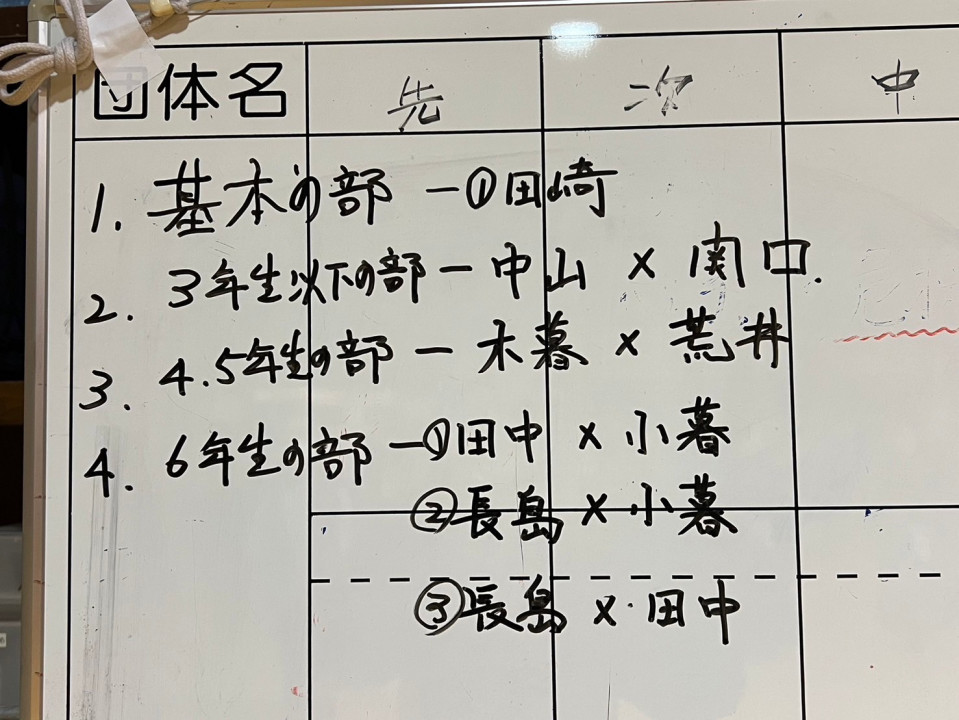 団体名 先 次 中
1. 基本の部 ー①田崎
2. 3年生以下の部 ー 中山 × 関口.
3. 4.5年生の部 ー 木暮 × 荒井
4. 6年生の部 ー①田中 × 小暮
②長島 × 小暮
③長島 × 田中